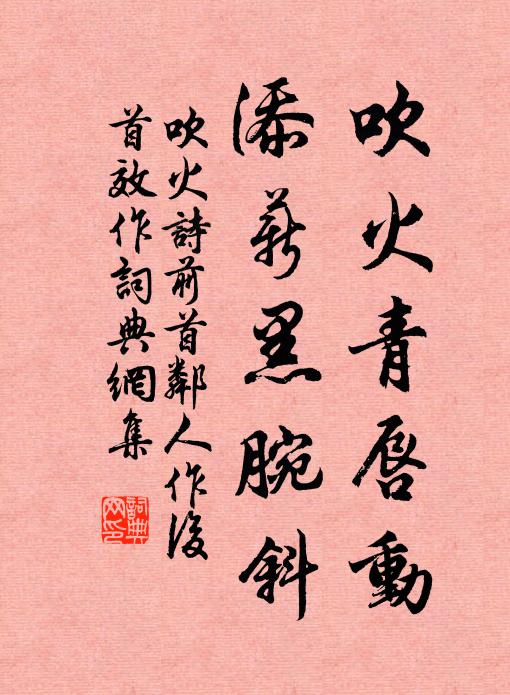 吹火青唇動
添薪黑腕斜
吹火詩前首鄰人作後
首效作詞典網集
詞典網印